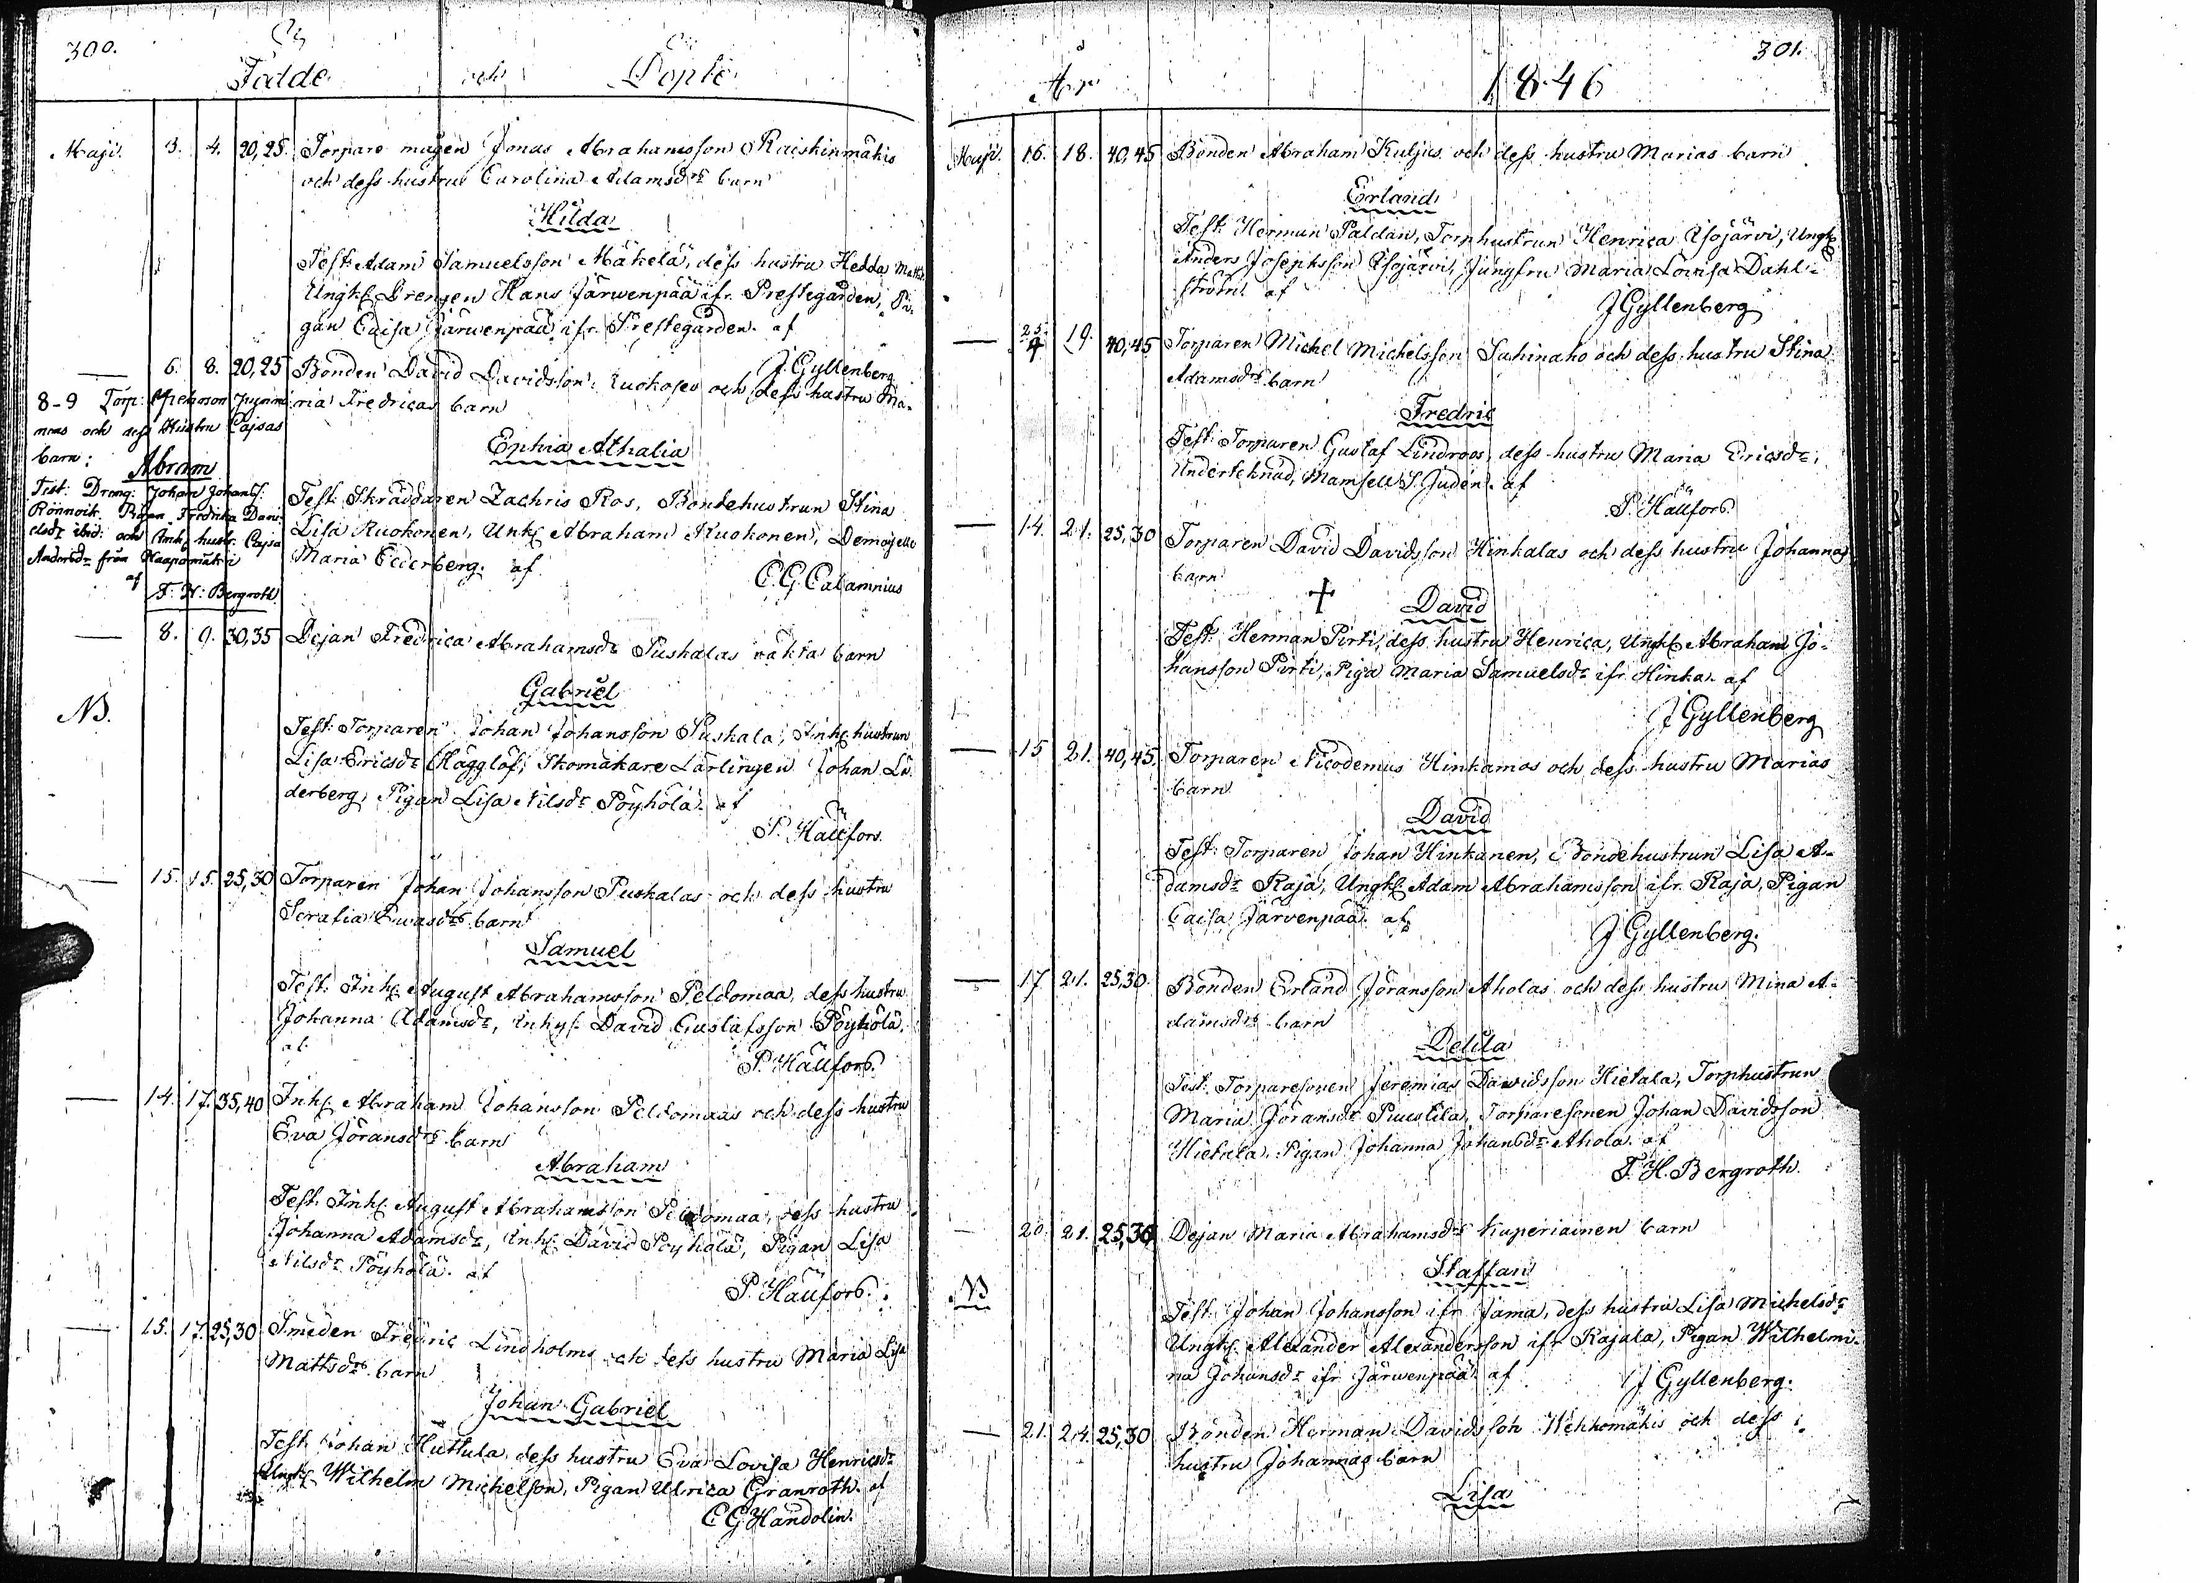 300.
Födde och Döpte
Maji. 3. 4. 20,25. Torpare mågen Jonas Abrahamsson Raiskinmäkis
och dess hustru Carolina Adamsdrs barn
Hilda
Test: Adam Samuelsson Mäkelä, dess hustru Hedda Matts
Ungk. Drengen Hans Järwenpää ifr. Prestegården, Pi-
gan Caisa Järwenpää ifr. Prestegården. af
J. Gyllenberg
— 6. 8. 20,25 Bonden David Davidsson Kuokoses och dess hustru Ma-
ria Fredricas barn
Ephia Athalia
Test: Skräddaren Zachris Ros, Bondehustrun Stina
Lisa Kuokonen, Unk. Abraham Kuokonen, Demoiselle
Maria Cederberg. af
C. G. Calamnius
8-9 Torp:
och dess Hustru Cajsas
barn:
Abram
Test: Dreng: Johan Johans:
Rönnvik. Pigan Fredrika Dani-
elsdr ibid: och Inh. hustr. Cajsa
Andersdr från Haapamäki
af
F. H: Bergroth
— 8. 9. 30,35 Dejan Fredrica Abrahamsdr Puskalas oäkta barn
Gabriel
NB.
Test: Torparen Johan Johansson Puskala, Inh. hustrun
Lisa Ericsdr Hägglöf, Skomakare Lärlingen Johan Lü-
derberg, Pigan Lisa Nilsdr Pöyhölä. af
P. Hällfors.
— 15. 15. 25,30 Torparen Johan Johansson Puskalas och dess hustru
Serafia Ewasdrs barn
Samuel
Test: Inh. August Abrahamsson Peldomaa, dess hustru
Johanna Adamsdr, Inhys. David Gustafsson Pöyhölä,
af
P. Hällfors.
— 14. 17. 35,40 Inh. Abraham Johansson Peldomaas och dess hustru
Eva Göransdrs barn
Abraham
Test: Inh. August Abrahamsson Peldomaa, dess hustru
Johanna Adamsdr, Inh. David Pöyhölä, Pigan Lisa
Nilsdr Pöyhölä. af
P. Hällfors.
— 15. 17. 25,30 Smeden Fredric Lindholms och dess hustru Maria Lisa
Mattsdrs barn
Johan Gabriel
Test: Johan Huttula, dess hustru Eva Lovisa Henricsdr
Ungk. Wilhelm Michelson, Pigan Ulrica Granroth. af
C. G. Handolin.
301.
År 1846
Maji. 16. 18. 40,45 Bonden Abraham Kuljus och dess hustru Marias barn
Erland
Test: Herman Paldan, Torphustrun Henrica Isojärvi, Ungk.
Anders Josephsson Isojärvi, Jungfru Maria Lovisa Dahl-
ström. af
J Gyllenberg
— 25. 4 19. 40,45 Torparen Michel Michelsson Suhinaho och dess hustru Stina
Adamsdrs barn
Fredric
Test: Torparen Gustaf Lindroos, dess hustru Maria Ericsdr,
Underteknad, Mamsell S. Juden. af
P. Hällfors.
— 14. 21. 25,30 Torparen David Davidsson Hinkalas och dess hustru Johannas
barn
+ David
Test: Herman Pirti, dess hustru Henrica, Ungk. Abraham Jo-
hansson Pirti, Piga Maria Samuelsdr ifr. Hinka. af
J Gyllenberg
— 15 21. 40,45. Torparen Nicodemus Hinkamos och dess hustru Marias
barn
David
Test: Torparen Johan Hinkanen, Bondehustrun Lisa A-
damsdr Raja, Ungk. Adam Abrahamsson ifr. Raja, Pigan
Caisa Järvenpää. af
J Gyllenberg.
— 17 21. 25,30. Bonden Erland Göransson Aholas och dess hustru Mina A-
damsdrs barn
Delila
Test: Torparesonen Jeremias Davidsson Hietala, Torphustrun
Maria Göransdr Puustila, Torparesonen Johan Davidsson
Hietala, Pigan Johanna Johansdr Ahola. af
F. H. Bergroth.
— 20. 21. 25,30 Dejan Maria Abrahamsdrs Kuperiainen barn
Staffan
NB
Test: Johan Johansson ifr Jama, dess hustru Lisa Michelsdr
Ungk. Alexander Alexandersson ifr Rajala, Pigan Wilhelmi-
na Johansdr ifr Järwenpää. af
J Gyllenberg.
— 21. 24. 25,30 Bonden Herman Davidsson Wehkomäkis och dess
hustru Johannas barn
Lisa